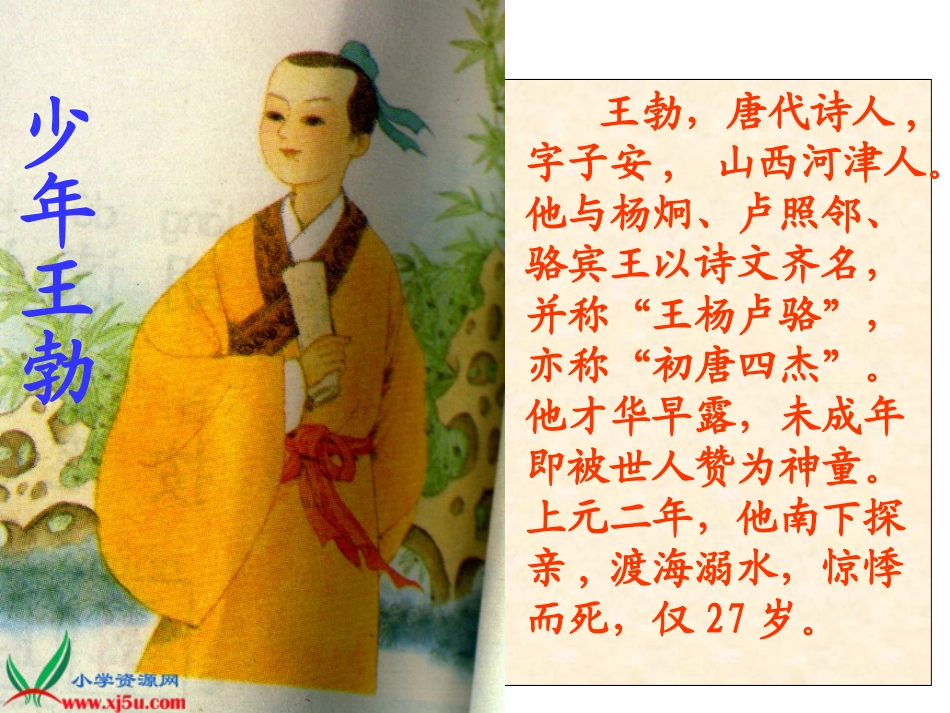 少年王勃
王勃，唐代诗人，
字子安， 山西河津人。
他与杨炯、卢照邻、
骆宾王以诗文齐名，
并称“王杨卢骆”，
亦称“初唐四杰”。
他才华早露，未成年
即被世人赞为神童。
上元二年，他南下探
亲，渡海溺水，惊悸
而死，仅 27 岁。
小学资源网
www.xj5u.com